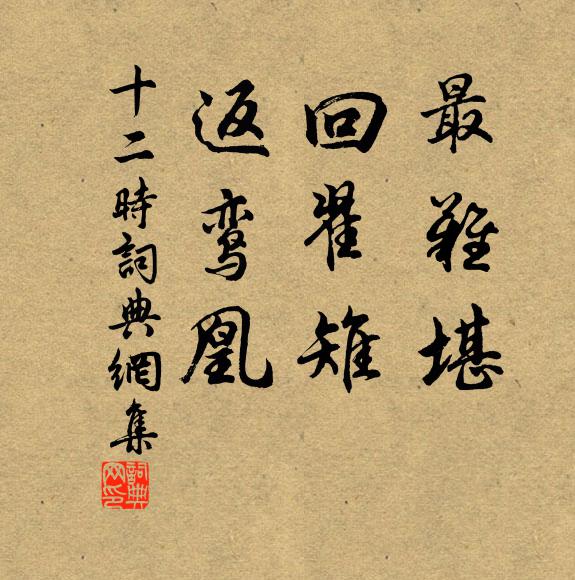 最難堪
回翟雉
返鸾凰
十二時詞典網集
詞典
网印